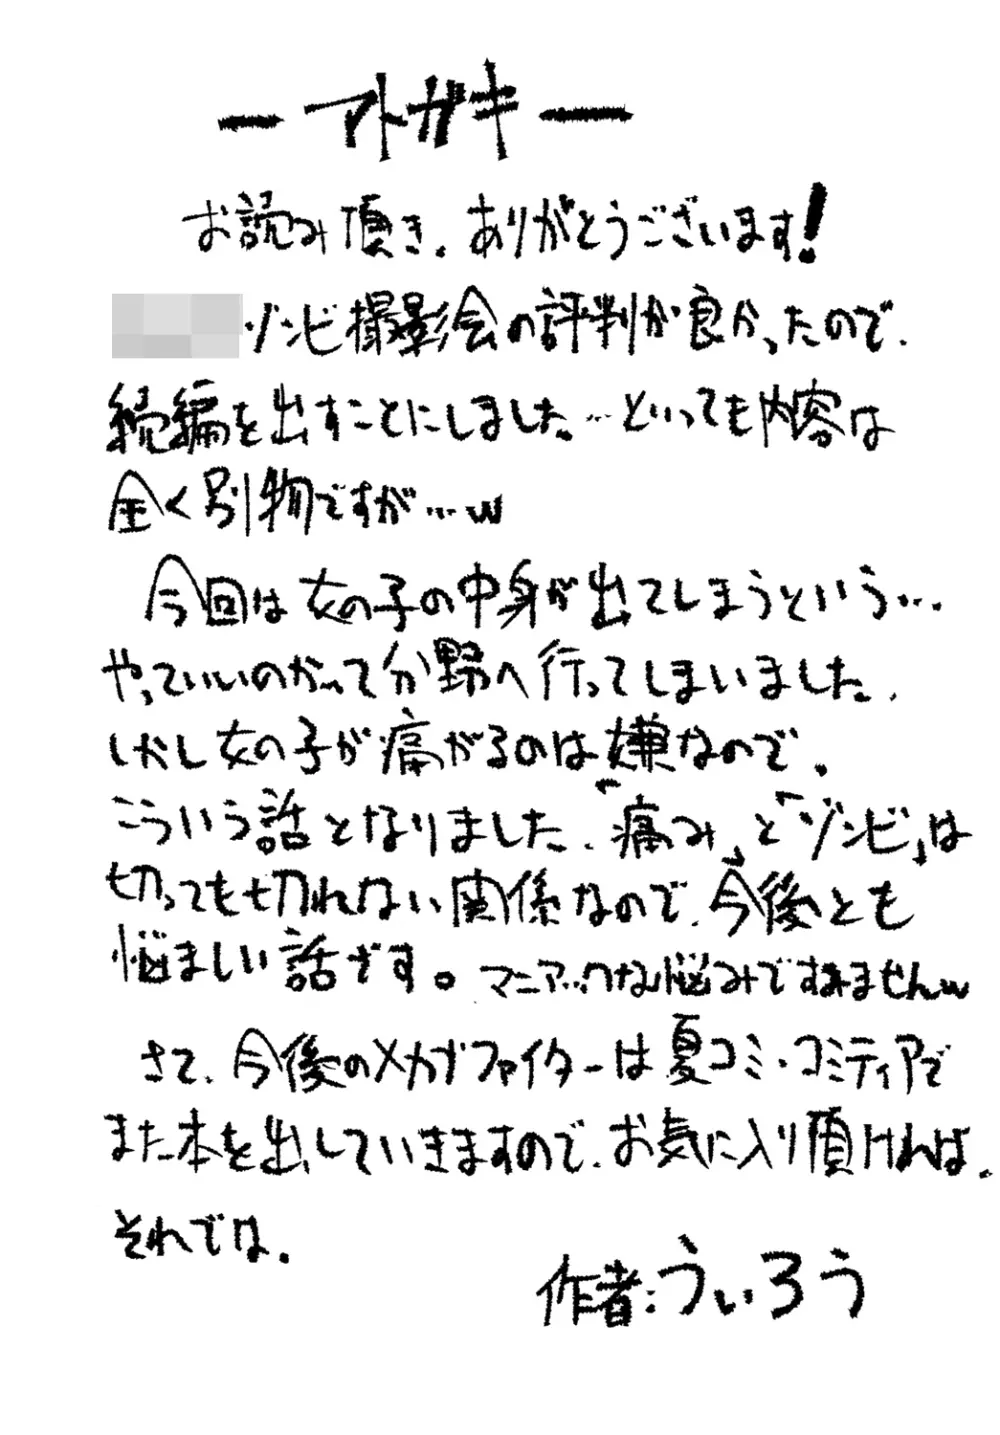 ーアトガキー
お読み頂き、ありがとうございます!
ゾンビ撮影会の評判が良かったので、
続編を出すことにしました。…といっても内容は
全く別物ですが…w
今回は女の子の中身が出てしまうという…
やっていいのかって分野へ行ってしまいました。
しかし女の子が痛がるのは嫌なので、
こういう話となりました。「痛み」と「ゾンビ」は
切っても切れない関係なので、今後とも
悩ましい話です。マニアックな悩みですみませんw
さて、今後のメカブファイターは夏コミ・コミティアで
また本を出していきますので、お気に入り頂ければ。
それでは。
作者:ういろう